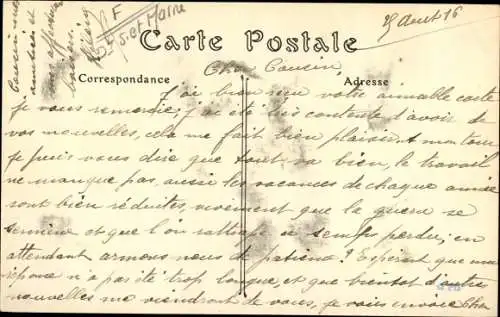 F
S. et Marne
25 Aout 16
Carte Postale
Correspondance
Adresse
Cher Cousin
J'ai bien reçu votre aimable carte
je vous remercie, j'ai été très contente d'avoir de
vos nouvelles, cela me fait bien plaisir mon tour
je puis vous dire que tout va bien, le travail
ne manque pas, aussi les vacances de chaque année
sont bien réduites, vivement que la guerre se
termine et que l'on rattrape ce temps perdu; en
attendant armons nous de patience! Espérant que ma
réponse n'a pas été trop longue, et que bientot d'autre
nouvelles me viendront de vous, je vous envoie Cher
Cousin mes
amitiés et
une affectueux
baiser